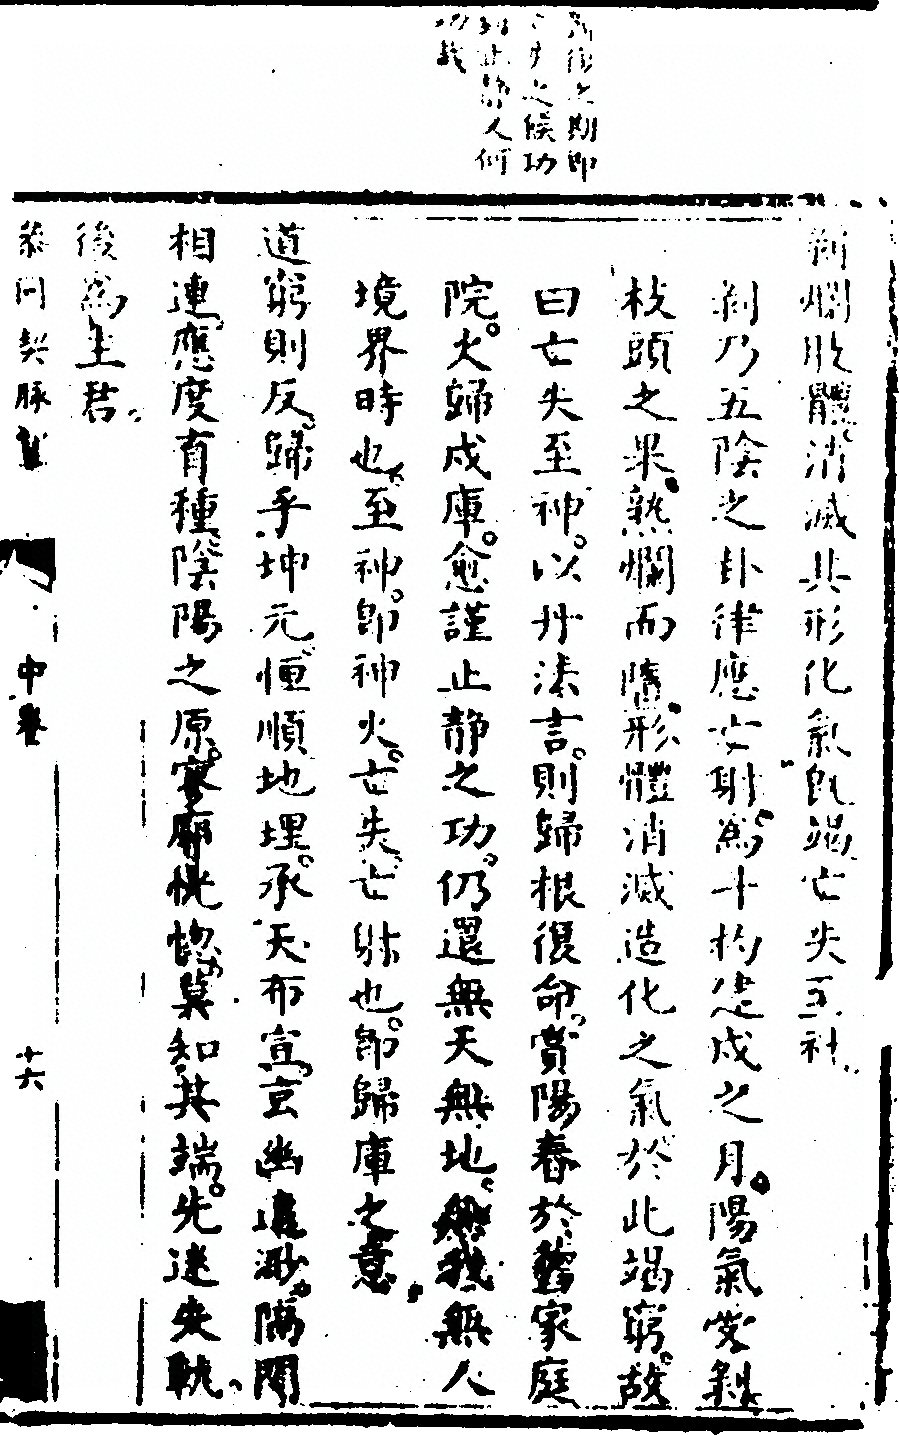 剝復之期即
亡失之候功
到此歸人何
功哉
剝爛肢體消滅其形化氣既竭亡失至神
剝乃五陰之卦律應亡射為十杓建戌之月陽氣受剝
枝頭之果熟爛而隳形體消滅造化之氣於此竭窮故
曰亡失至神以丹法言則歸根復命賞陽春於舊家庭
院火歸戌庫愈謹止靜之功仍還無天無地無我無人
境界時也至神即神火亡失亡射也即歸庫之意
道窮則反歸乎坤元恒順地理承天布宣玄幽遠渺隔閡
相連應度育種陰陽之原寥廓恍惚莫知其端先迷失軌
後為主君
參同契脉望
中卷
十六